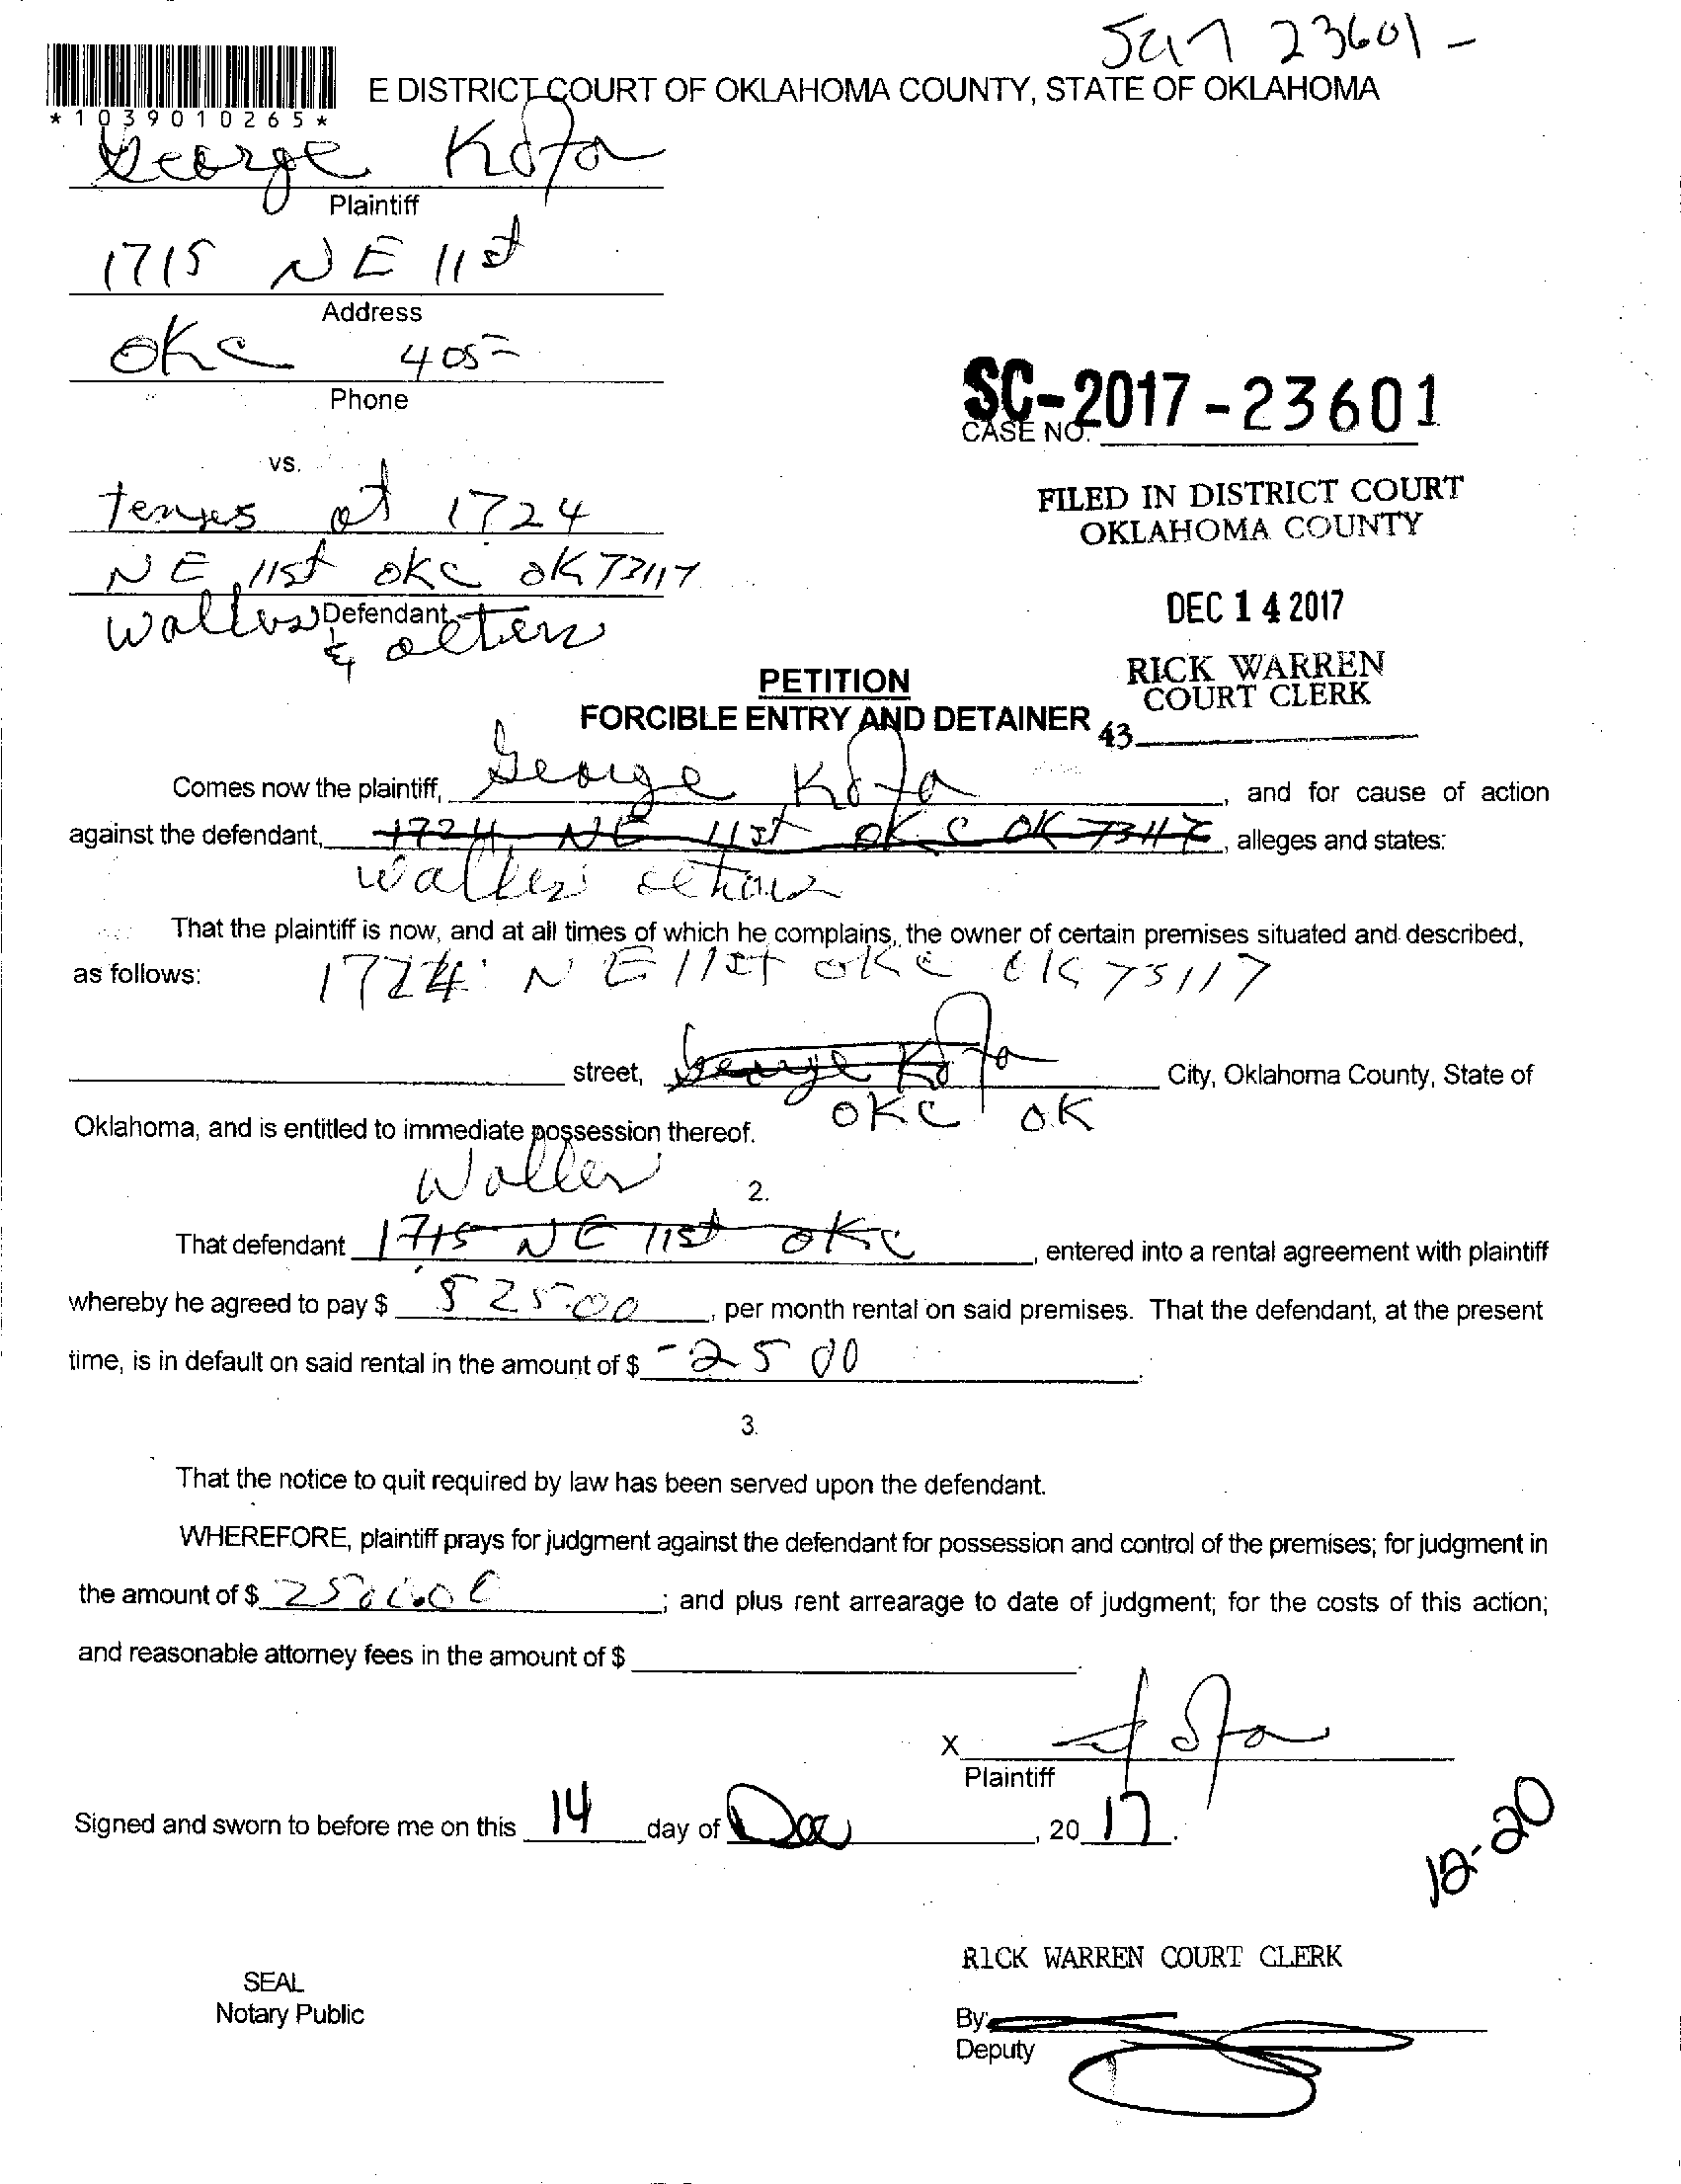 23601 -
E DISTRICT COURT OF OKLAHOMA COUNTY, STATE OF OKLAHOMA
*1039010265*
George Kofa
Plaintiff
1715 NE 11st
Address
OKC 405-
Phone
SC-2017-23601
CASE NO.
vs.
at 1724
NE 11st OKC OK 73117
Defendant
&
FILED IN DISTRICT COURT
OKLAHOMA COUNTY
DEC 14 2017
RICK WARREN
COURT CLERK
43
PETITION
FORCIBLE ENTRY AND DETAINER
Comes now the plaintiff, George Kofa, and for cause of action
against the defendant, 1724 NE 11st OKC OK 73117, alleges and states:
That the plaintiff is now, and at all times of which he complains, the owner of certain premises situated and described,
as follows: 1724 NE 11st OKC OK 73117
street, George Kofa City, Oklahoma County, State of
OKC OK
Oklahoma, and is entitled to immediate possession thereof.
Waller
2.
That defendant 1715 NE 11st OKC, entered into a rental agreement with plaintiff
whereby he agreed to pay $ 525.00, per month rental on said premises. That the defendant, at the present
time, is in default on said rental in the amount of $ -2500.
3.
That the notice to quit required by law has been served upon the defendant.
WHEREFORE, plaintiff prays for judgment against the defendant for possession and control of the premises; for judgment in
the amount of $ 2500.00; and plus rent arrearage to date of judgment; for the costs of this action;
and reasonable attorney fees in the amount of $
X
Plaintiff
Signed and sworn to before me on this 14 day of Dec, 2017.
12-20
RICK WARREN COURT CLERK
SEAL
Notary Public
By
Deputy